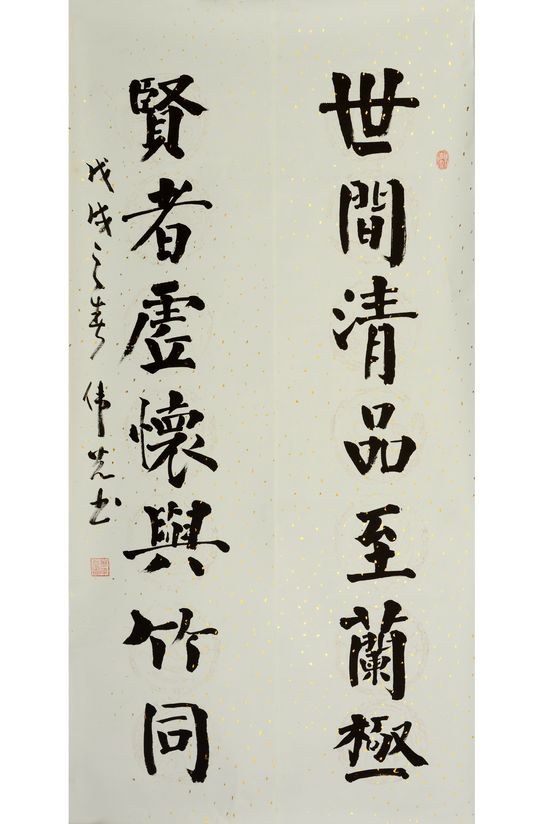 世間清品至蘭極
賢者虛懷與竹同
戊戌之春 伟芫书